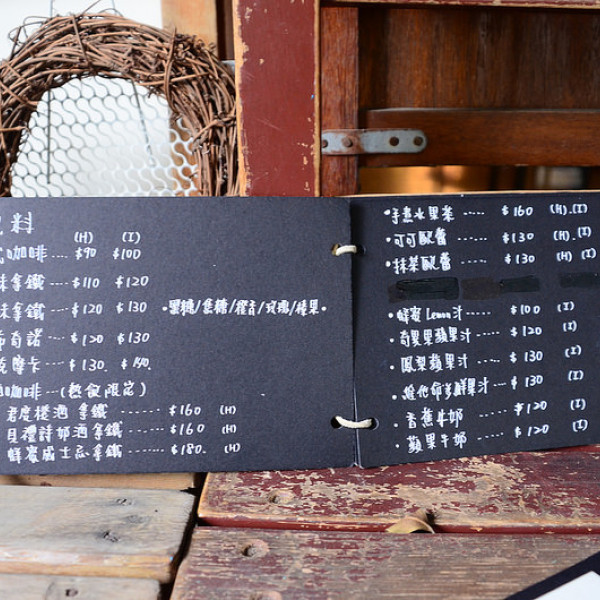 料
(H) (I)
咖啡 --- $90 $100
拿鐵 ---- $110 $120
味拿鐵 ---- $120 $130 •黑糖/焦糖/榛果•
奇諾 ---- $120 $130
摩卡 --- $130. $150.
咖啡 --- (熱飲限定)
君度橙酒 拿鐵 ------- $160 (H)
貝禮詩奶酒 拿鐵 ------ $160 (H)
蜂蜜威士忌拿鐵 ------ $180. (H)
•手煮水果茶 ----- $160 (H).(I)
•可可歐蕾 ------ $130 (H).(I)
•抹茶歐蕾 ----- $130 (H) (I)
•蜂蜜Lemon汁 ----- $100 (I)
•奇異果蘋果汁 --- $120 (I)
•鳳梨蘋果汁 ---- $130 (I)
•維他命多鮮果汁 --- $130 (I)
•香蕉牛奶 ---- $120 (I)
•蘋果牛奶 ---- $120 (I)